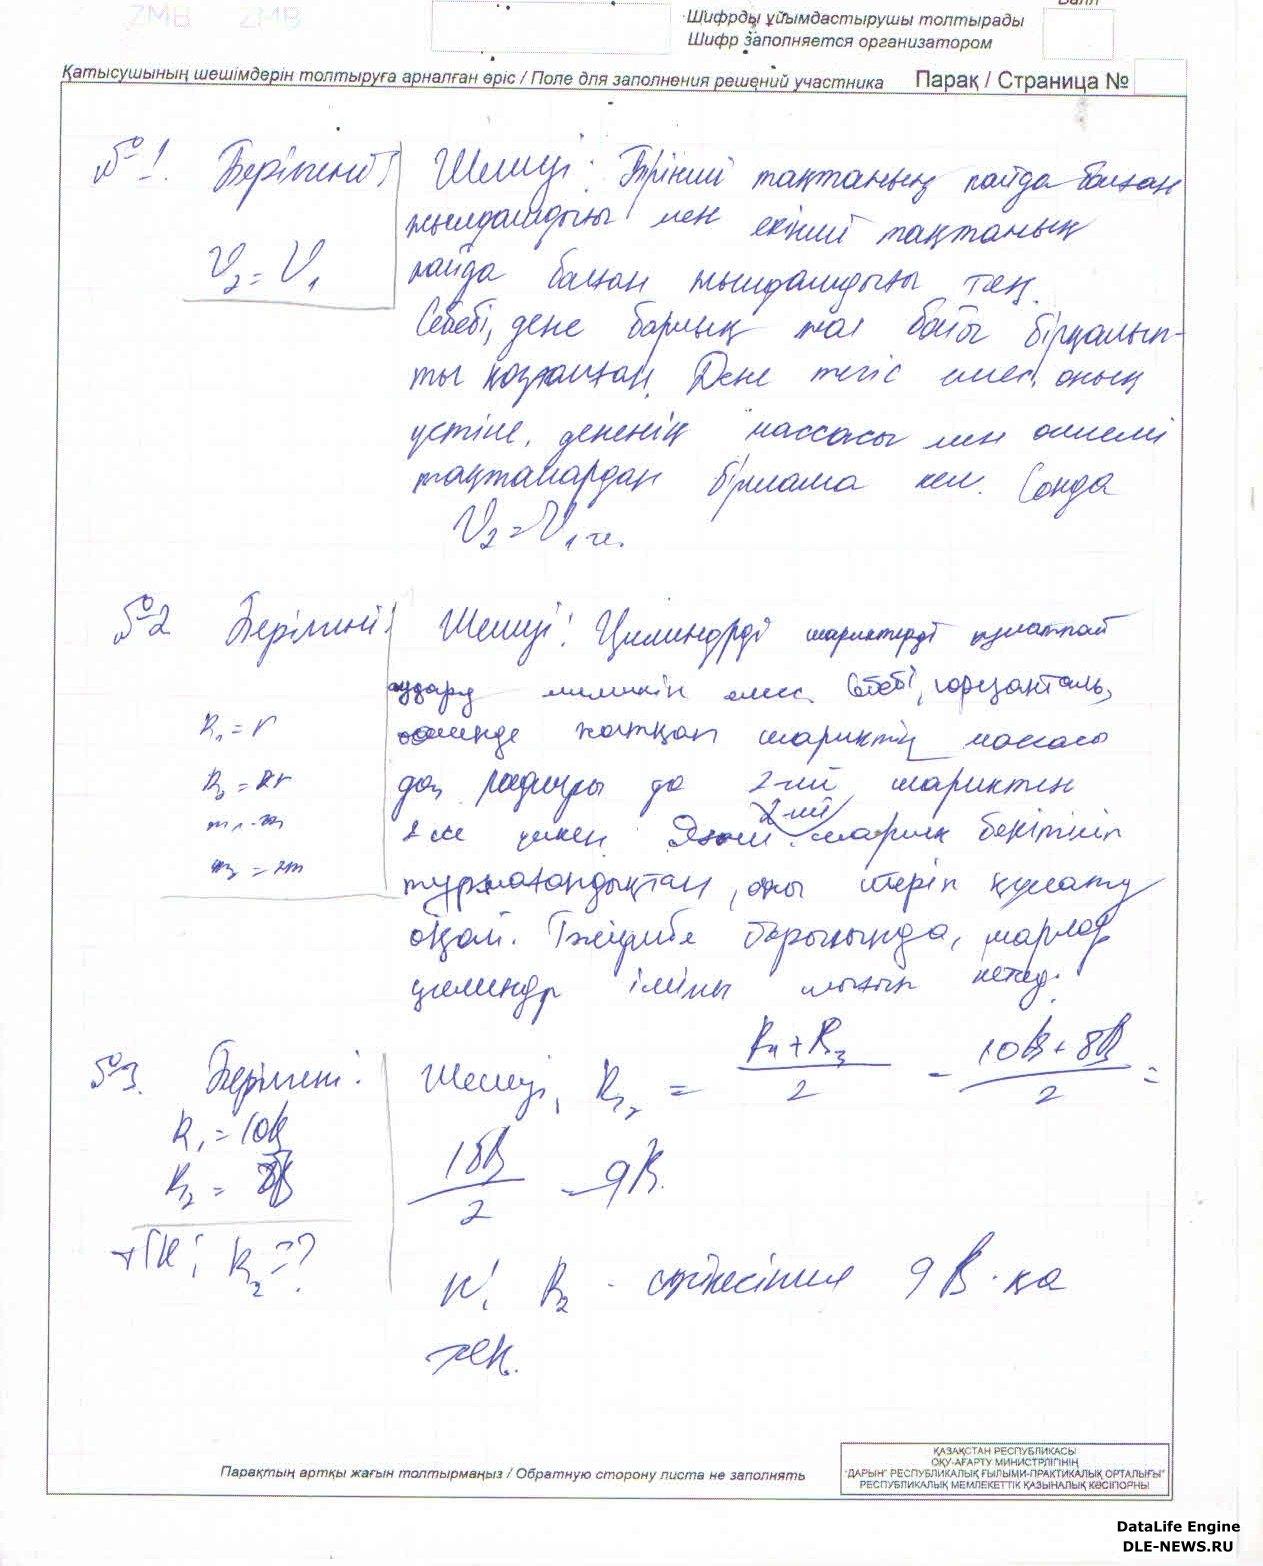 ZMB ZMB
Балл
Шифрды ұйымдастырушы толтырады
Шифр заполняется организатором
Қатысушының шешімдерін толтыруға арналған өріс / Поле для заполнения решений участника Парақ / Страница №
№1. Берілгені: Шешуі: Бірінші тақтаның пайда болған
жылдамдығы мен екінші тақтаның
V₂ = V₁ пайда болған жылдамдығы тең.
Себебі, дене барлық жол бойы бірқалып-
ты қозғалған. Дене тегіс емес, оның
үстіне, дененің массасы мен
тақталардан бірдама кем. Сонда
V₂ = V₁
№2 Берілгені: Шешуі: Цилиндрді шариктерді құлатпай
аудару мүмкін емес. Себебі, горизонталь
R₁ = r жатқан шариктің массасы
да, радиусы да 2-ші шариктен
2 есе үлкен. 2-ші шарик бекітіліп
m₂ = 2m тұрмағандықтан, оны итеріп құлату
оңай. Тәжірибе барысында, шарлар
цилиндр ішінен шығып кетеді.
№3. Берілгені: Шешуі: = 10В + 8В / 2 =
R₁ = 10В
R₂ = 8В 18В / 2 = 9В.
Т/К: R₂ = ? Ж: R₂ - сәйкесінше 9В-қа
тең.
Парақтың артқы жағын толтырмаңыз / Обратную сторону листа не заполнять
ҚАЗАҚСТАН РЕСПУБЛИКАСЫ
ОҚУ-АҒАРТУ МИНИСТРЛІГІНІҢ
"ДАРЫН" РЕСПУБЛИКАЛЫҚ ҒЫЛЫМИ-ПРАКТИКАЛЫҚ ОРТАЛЫҒЫ"
РЕСПУБЛИКАЛЫҚ МЕМЛЕКЕТТІК ҚАЗЫНАЛЫҚ КӘСІПОРНЫ
DataLife Engine
DLE-NEWS.RU